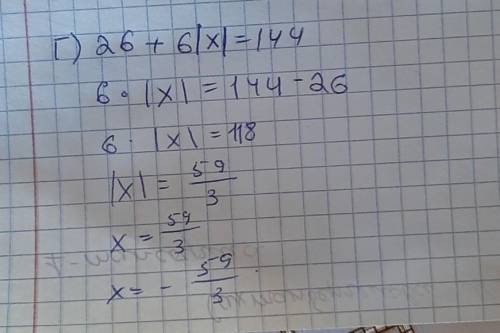 Г) 26 + 6|x| = 144
6 · |x| = 144 - 26
6 · |x| = 118
|x| = 59/3
x = 59/3
x = - 59/3